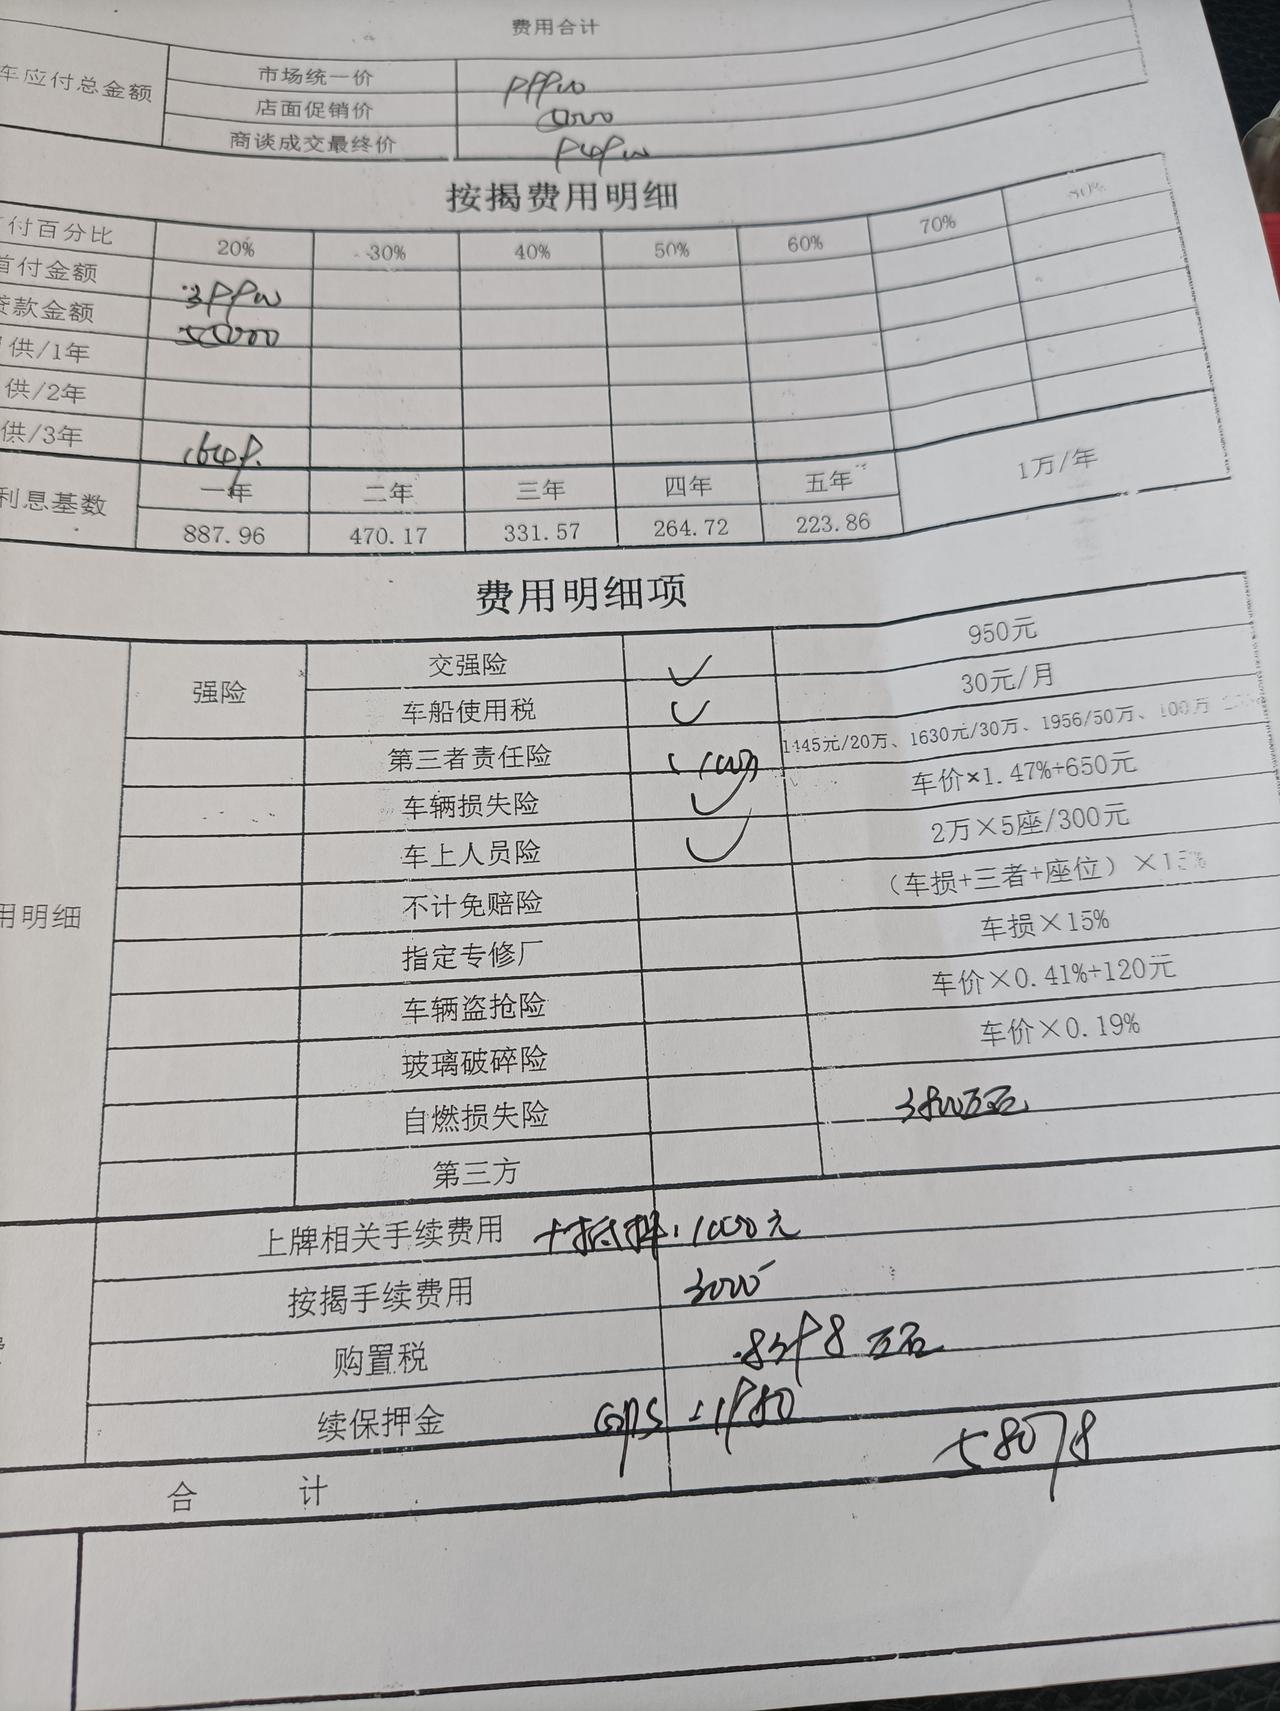 费用合计
车应付总金额
市场统一价
店面促销价
商谈成交最终价
按揭费用明细
付百分比 20% 30% 40% 50% 60% 70% 80%
首付金额
贷款金额 55000
供/1年
供/2年
供/3年
利息基数 一年 二年 三年 四年 五年 1万/年
887.96 470.17 331.57 264.72 223.86
费用明细项
用明细
强险 交强险 950元
车船使用税 30元/月
第三者责任险 1445元/20万、1630元/30万、1956/50万、100万
车辆损失险 车价×1.47%+650元
车上人员险 2万×5座/300元
不计免赔险 (车损+三者+座位)×15%
指定专修厂 车损×15%
车辆盗抢险 车价×0.41%+120元
玻璃破碎险 车价×0.19%
自燃损失险
第三方
上牌相关手续费用 +抵押:1000元
按揭手续费用 3000
购置税
续保押金 GPS:1980
合计 58078